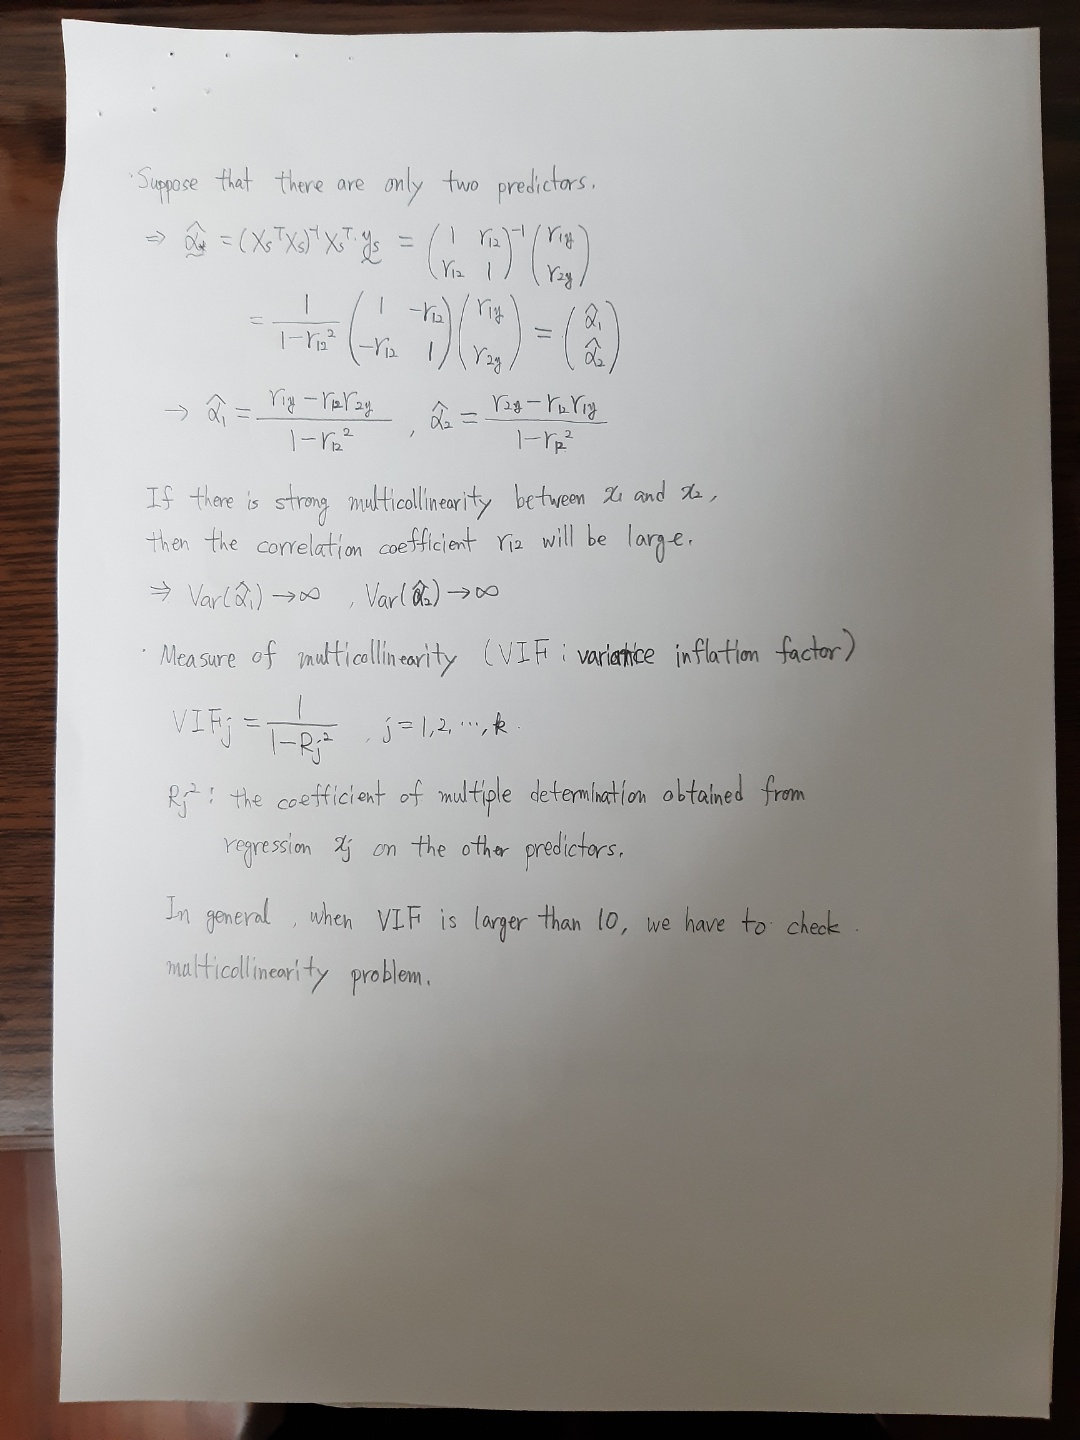 · Suppose that there are only two predictors.
⇒ α̂* = (Xs^T Xs)^-1 Xs^T · ys = (1 r12; r12 1)^-1 (r1y; r2y)
= 1/(1-r12^2) (1 -r12; -r12 1) (r1y; r2y) = (α̂1; α̂2)
→ α̂1 = (r1y - r12r2y)/(1-r12^2) , α̂2 = (r2y - r12r1y)/(1-r12^2)
If there is strong multicollinearity between x1 and x2,
then the correlation coefficient r12 will be large.
⇒ Var(α̂1) → ∞ , Var(α̂2) → ∞
· Measure of multicollinearity (VIF : variance inflation factor)
VIFj = 1/(1-Rj^2) , j = 1, 2, ⋯, k.
Rj^2 : the coefficient of multiple determination obtained from
regression xj on the other predictors.
In general, when VIF is larger than 10, we have to check
multicollinearity problem.